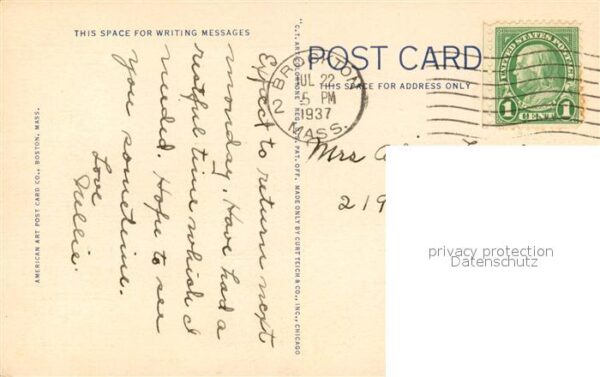 THIS SPACE FOR WRITING MESSAGES
POST CARD
THIS SPACE FOR ADDRESS ONLY
BROCKTON
JUL 22
5 PM
1937
2
MASS.
UNITED STATES POSTAGE
1 CENT 1
Expect to return next
monday. Have had a
restful time which I
needed. Hope to see
you sometime.
Love
Nellie.
Mrs
219
privacy protection
Datenschutz
AMERICAN ART POST CARD CO., BOSTON, MASS.
"C.T. ART-COLORTONE" REG. U.S. PAT. OFF. MADE ONLY BY CURT TEICH & CO., INC., CHICAGO